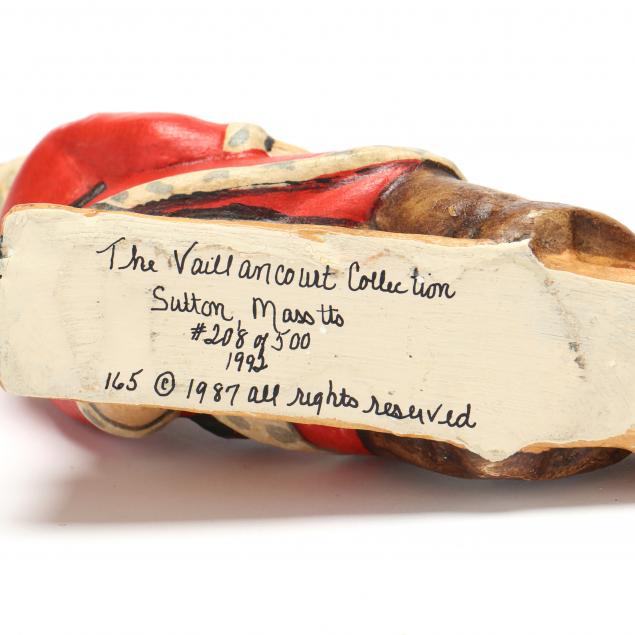 The Vaillancourt Collection
Sutton, Masstts
#208 of 500
1992
165 © 1987 all rights reserved